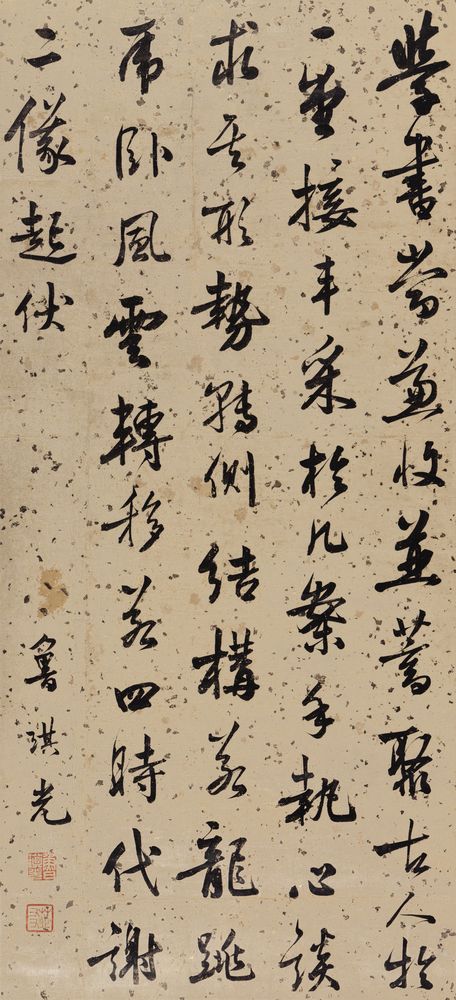 學書當兼收並蓄聚古人於
一堂接丰采於几案手執心談
求其形勢轉側結構若龍跳
虎臥風雲轉移若四時代謝
二儀起伏
魯琪光